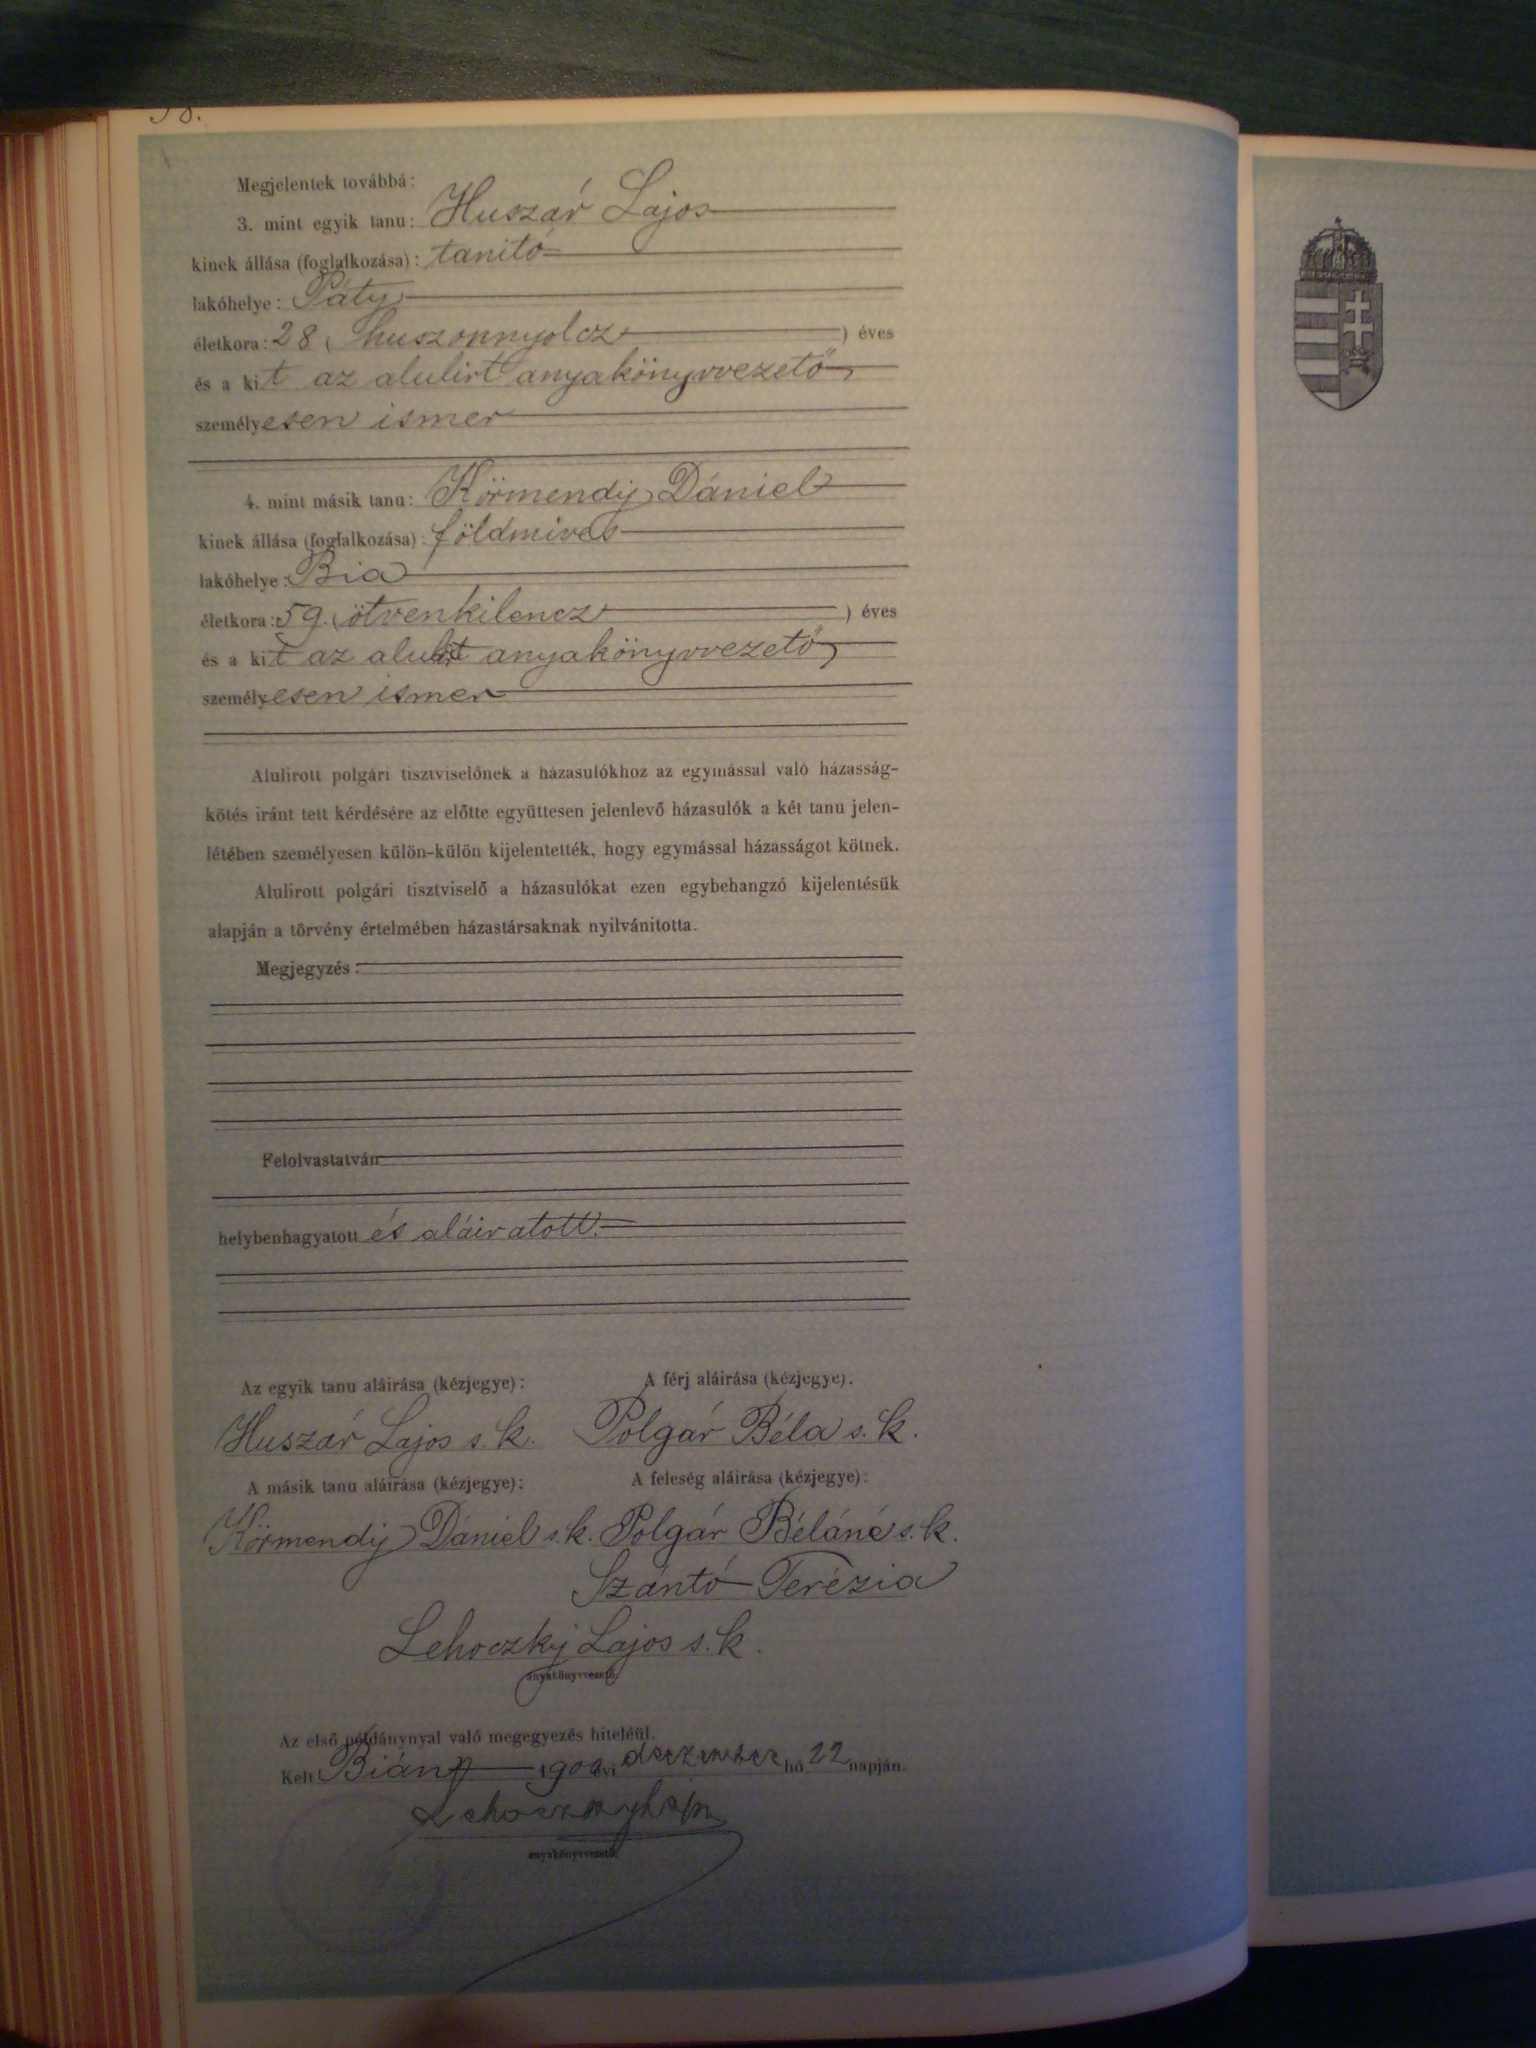 58.
Megjelentek továbbá:
3. mint egyik tanu: Huszár Lajos
kinek állása (foglalkozása): tanító
lakóhelye: Páty
életkora: 28 (huszonnyolcz) éves
és a kit az alulirt anyakönyvvezető,
személyesen ismer
4. mint másik tanu: Körmendy Dániel
kinek állása (foglalkozása): földmives
lakóhelye: Bia
életkora: 59. (ötvenkilencz) éves
és a kit az alulirt anyakönyvvezető,
személyesen ismer
Alulirott polgári tisztviselőnek a házasulókhoz az egymással való házasság-
kötés iránt tett kérdésére az előtte együttesen jelenlevő házasulók a két tanu jelen-
létében személyesen külön-külön kijelentették, hogy egymással házasságot kötnek.
Alulirott polgári tisztviselő a házasulókat ezen egybehangzó kijelentésük
alapján a törvény értelmében házastársaknak nyilvánitotta.
Megjegyzés:
Felolvastatván
helybenhagyatott és aláiratott.
Az egyik tanu aláirása (kézjegye): A férj aláirása (kézjegye):
Huszár Lajos s. k. Polgár Béla s. k.
A másik tanu aláirása (kézjegye): A feleség aláirása (kézjegye):
Körmendy Dániel s. k. Polgár Béláné s. k.
Szántó Terézia
Lehoczky Lajos s. k.
anyakönyvvezető.
Az első példánynyal való megegyezés hiteléül.
Kelt Bián évi deczember hó 22 napján.
Lehoczky Lajos
anyakönyvvezető.